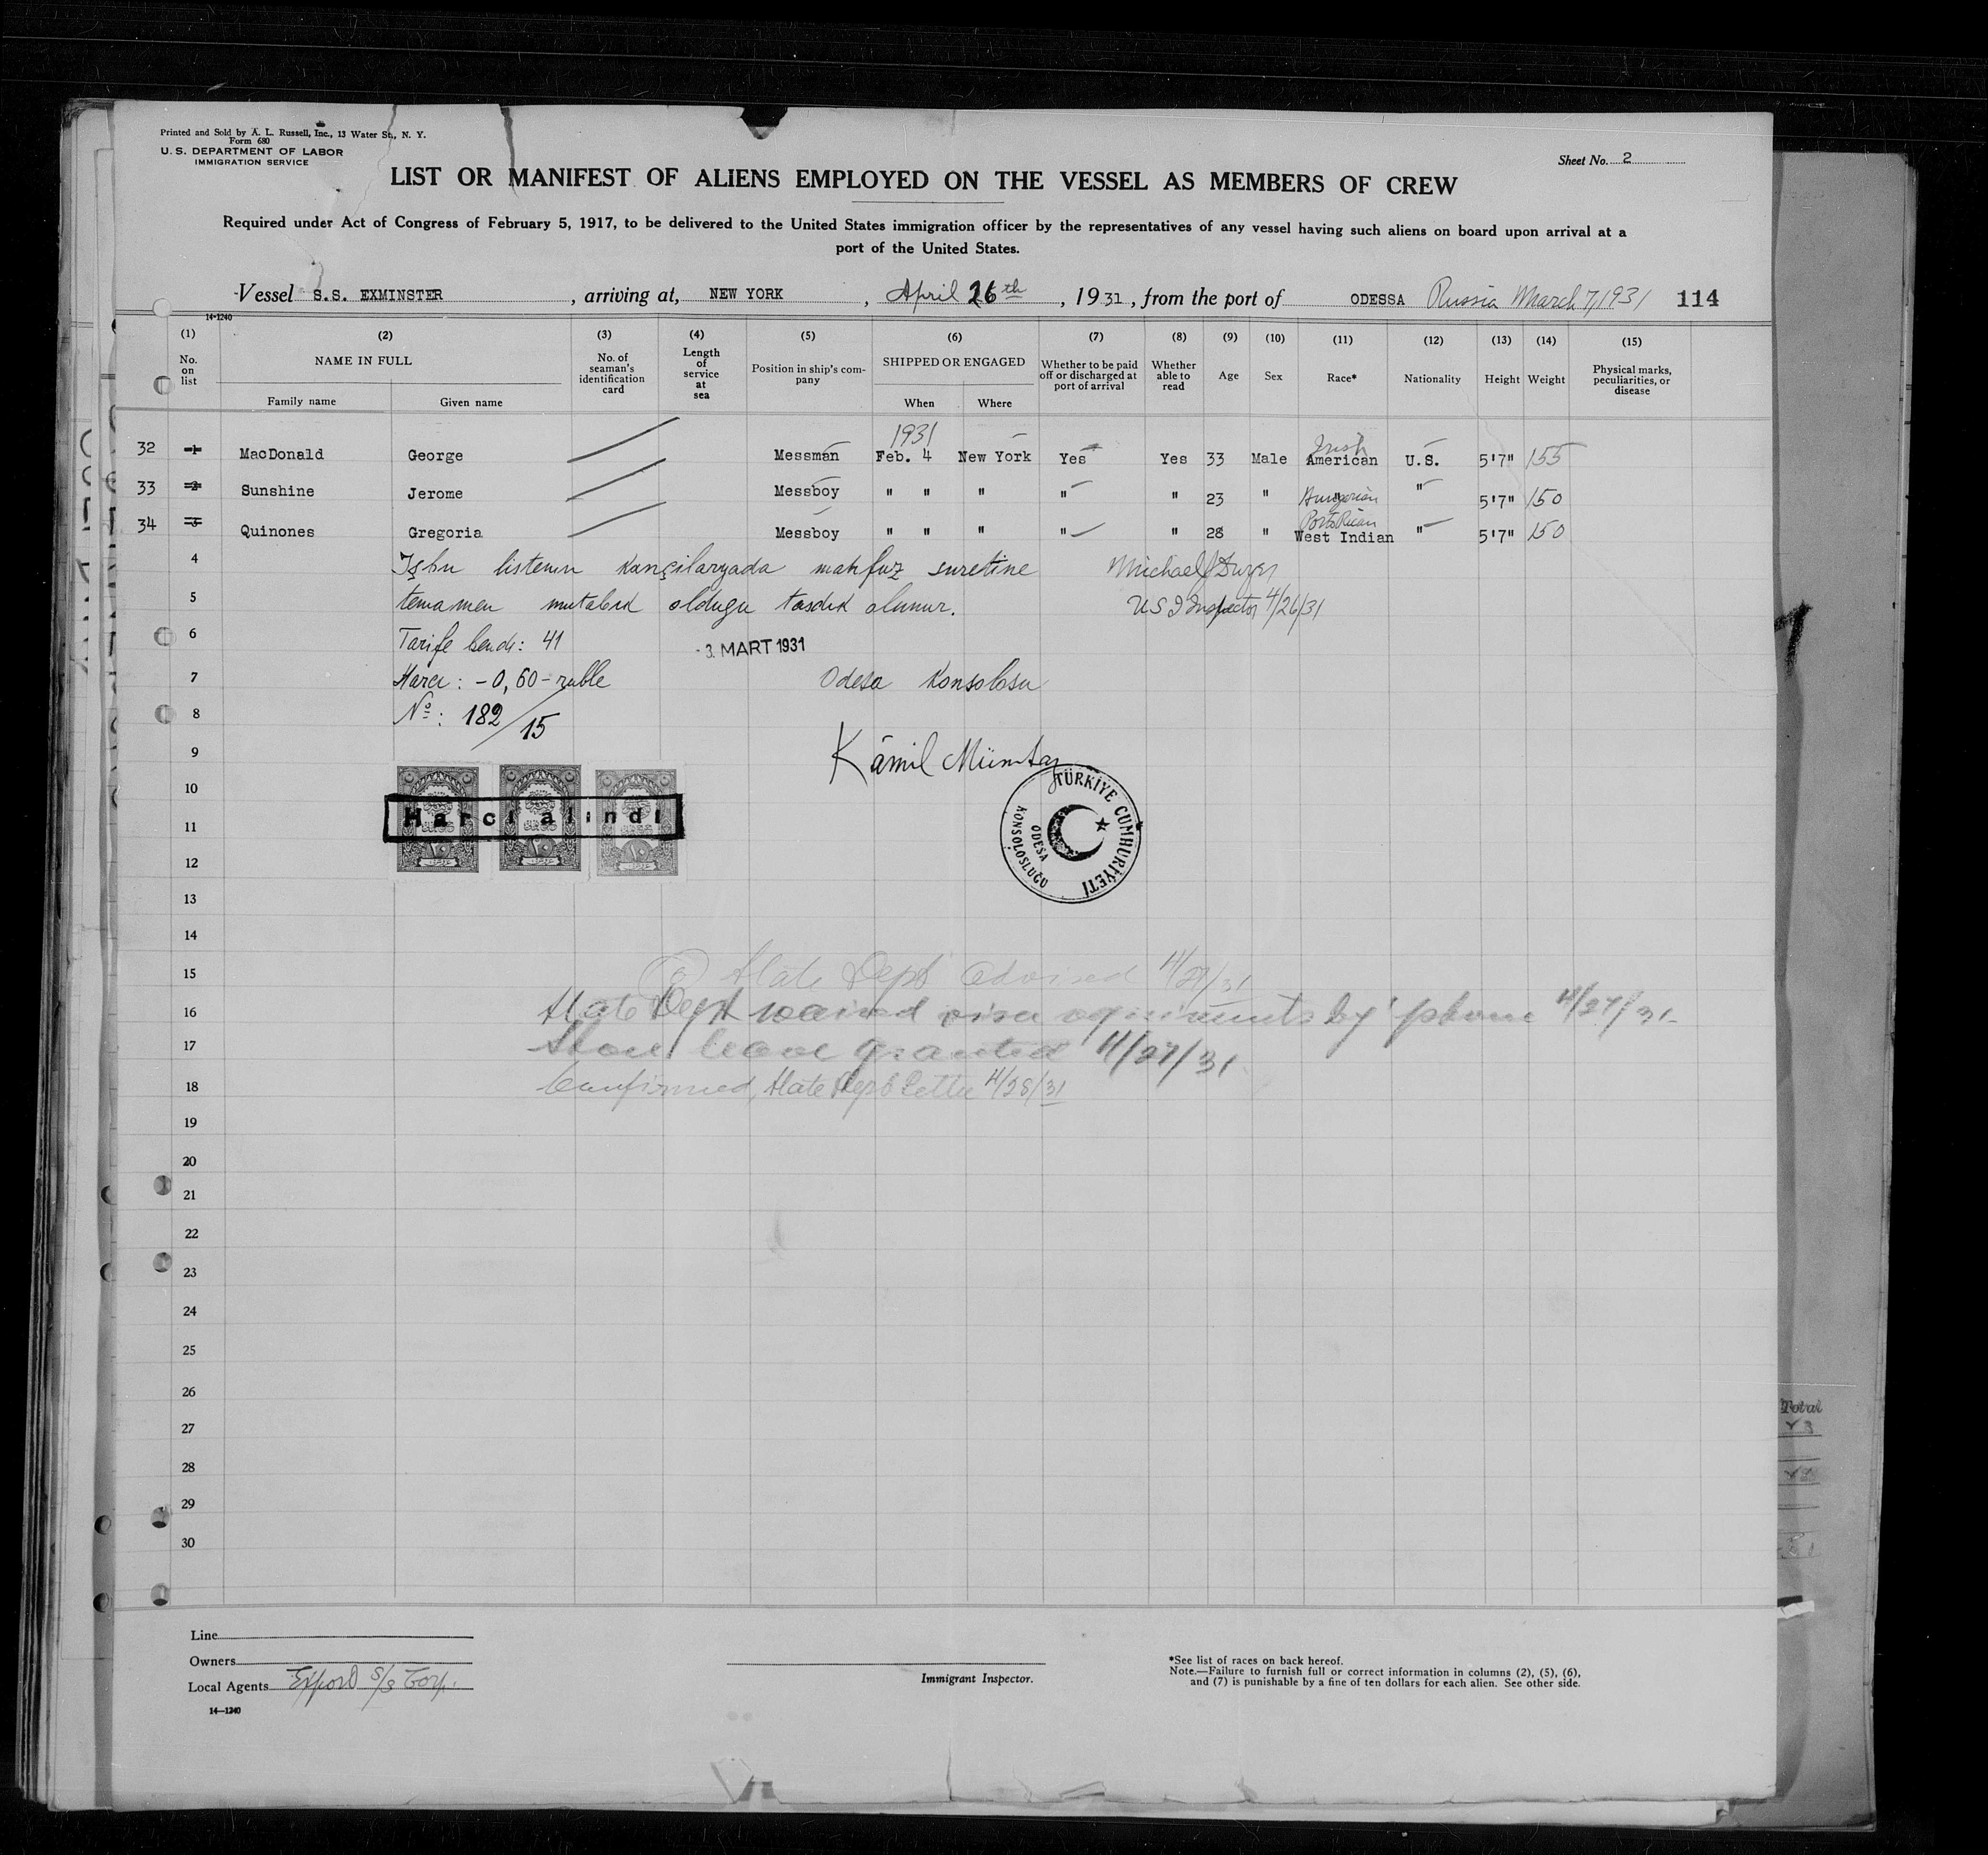 Printed and Sold by A. L. Russell, Inc., 13 Water St., N. Y.
Form 680
U. S. DEPARTMENT OF LABOR
IMMIGRATION SERVICE
Sheet No. 2
LIST OR MANIFEST OF ALIENS EMPLOYED ON THE VESSEL AS MEMBERS OF CREW
Required under Act of Congress of February 5, 1917, to be delivered to the United States immigration officer by the representatives of any vessel having such aliens on board upon arrival at a
port of the United States.
Vessel S.S. EXMINSTER, arriving at, NEW YORK, April 26th, 1931, from the port of ODESSA Russia March 7, 1931 114
14-1240
(1) (2) (3) (4) (5) (6) (7) (8) (9) (10) (11) (12) (13) (14) (15)
No. on list NAME IN FULL No. of seaman's identification card Length of service at sea Position in ship's company SHIPPED OR ENGAGED Whether to be paid off or discharged at port of arrival Whether able to read Age Sex Race* Nationality Height Weight Physical marks, peculiarities, or disease
Family name Given name When Where
1931 Irish
32 1 MacDonald George Messman Feb. 4 New York Yes Yes 33 Male American U.S. 5'7" 155
33 2 Sunshine Jerome Messboy " " " " " 23 " Hungarian " 5'7" 150
Porto Rican
34 3 Quinones Gregoria Messboy " " " " " 28 " West Indian " 5'7" 150
4 İşbu listenin kançilaryada mahfuz suretine Michael J Dwyer
5 temamen mutabık olduğu tasdık olunur. U S I Inspector 4/26/31
6 Tarife bendi: 41 -3. MART 1931
7 Harcı: -0,60- ruble Odesa Konsolosu
8 No: 182/15
9 Kâmil Mümtaz
10
11 Harcı alındı
TÜRKİYE CUMHURİYETİ
ODESA
KONSOLOSLUĞU
12
13
14
15 State Dept advised 4/27/31
16 State Dept waived visa requirements by phone 4/27/31
17 Shore leave granted 4/27/31
18 Confirmed, State Dept Letter 4/28/31
19
20
21
22
23
24
25
26
27
28
29
30
Total
Line
Owners
Local Agents Export S/S Corp.
14—1240
Immigrant Inspector.
*See list of races on back hereof.
Note.—Failure to furnish full or correct information in columns (2), (5), (6),
and (7) is punishable by a fine of ten dollars for each alien. See other side.